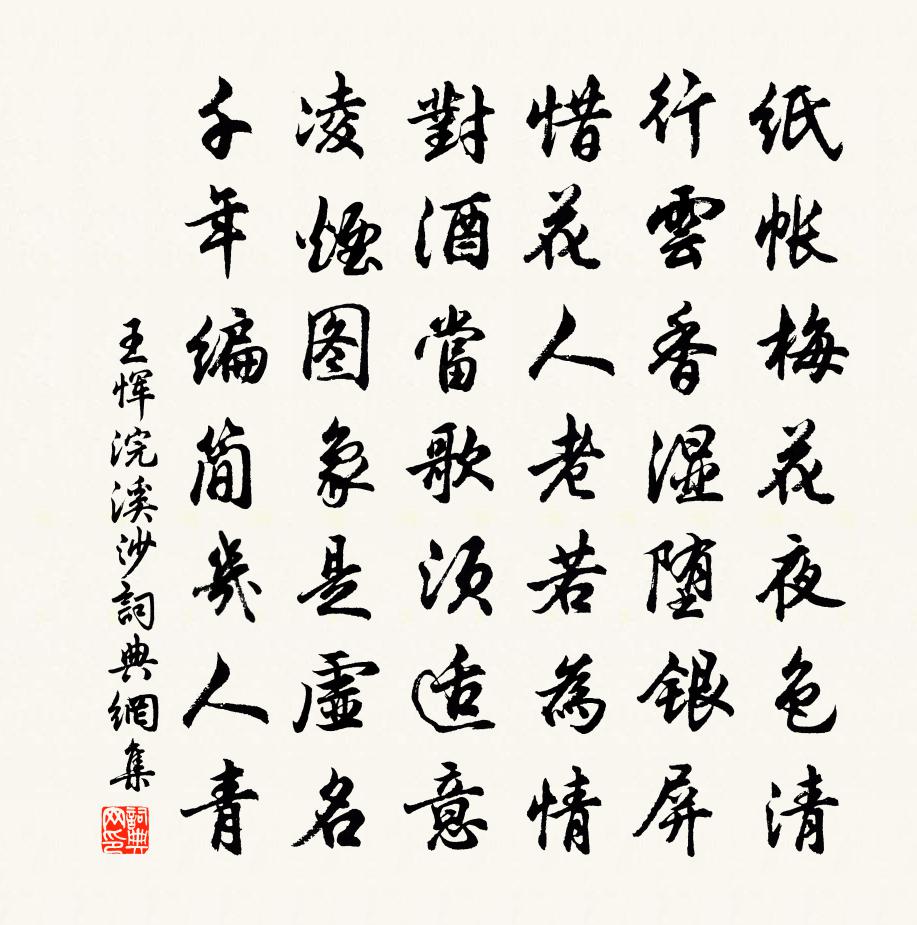 紙帳梅花夜色清
行雲香湿堕銀屏
惜花人老若為情
對酒當歌須适意
凌煙图象是虛名
千年编简幾人青
王惲浣溪沙詞典網集
詞典网印